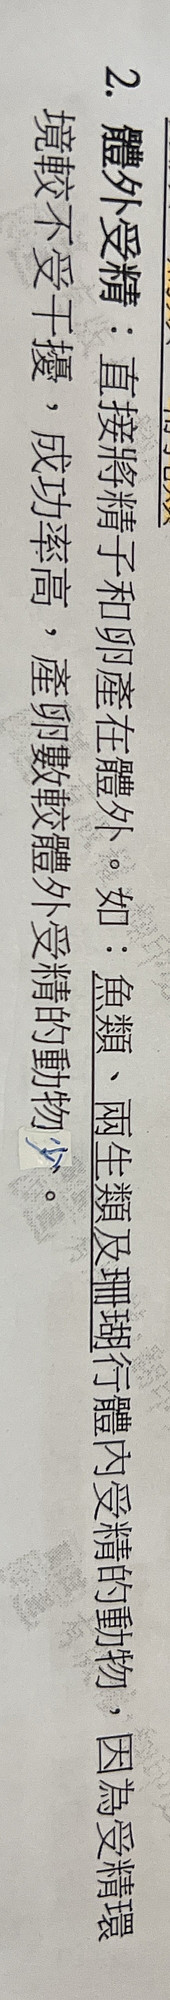 2. 體外受精：直接將精子和卵產在體外。如：魚類、兩生類及珊瑚行體內受精的動物，因為受精環
境較不受干擾，成功率高，產卵數較體外受精的動物少。